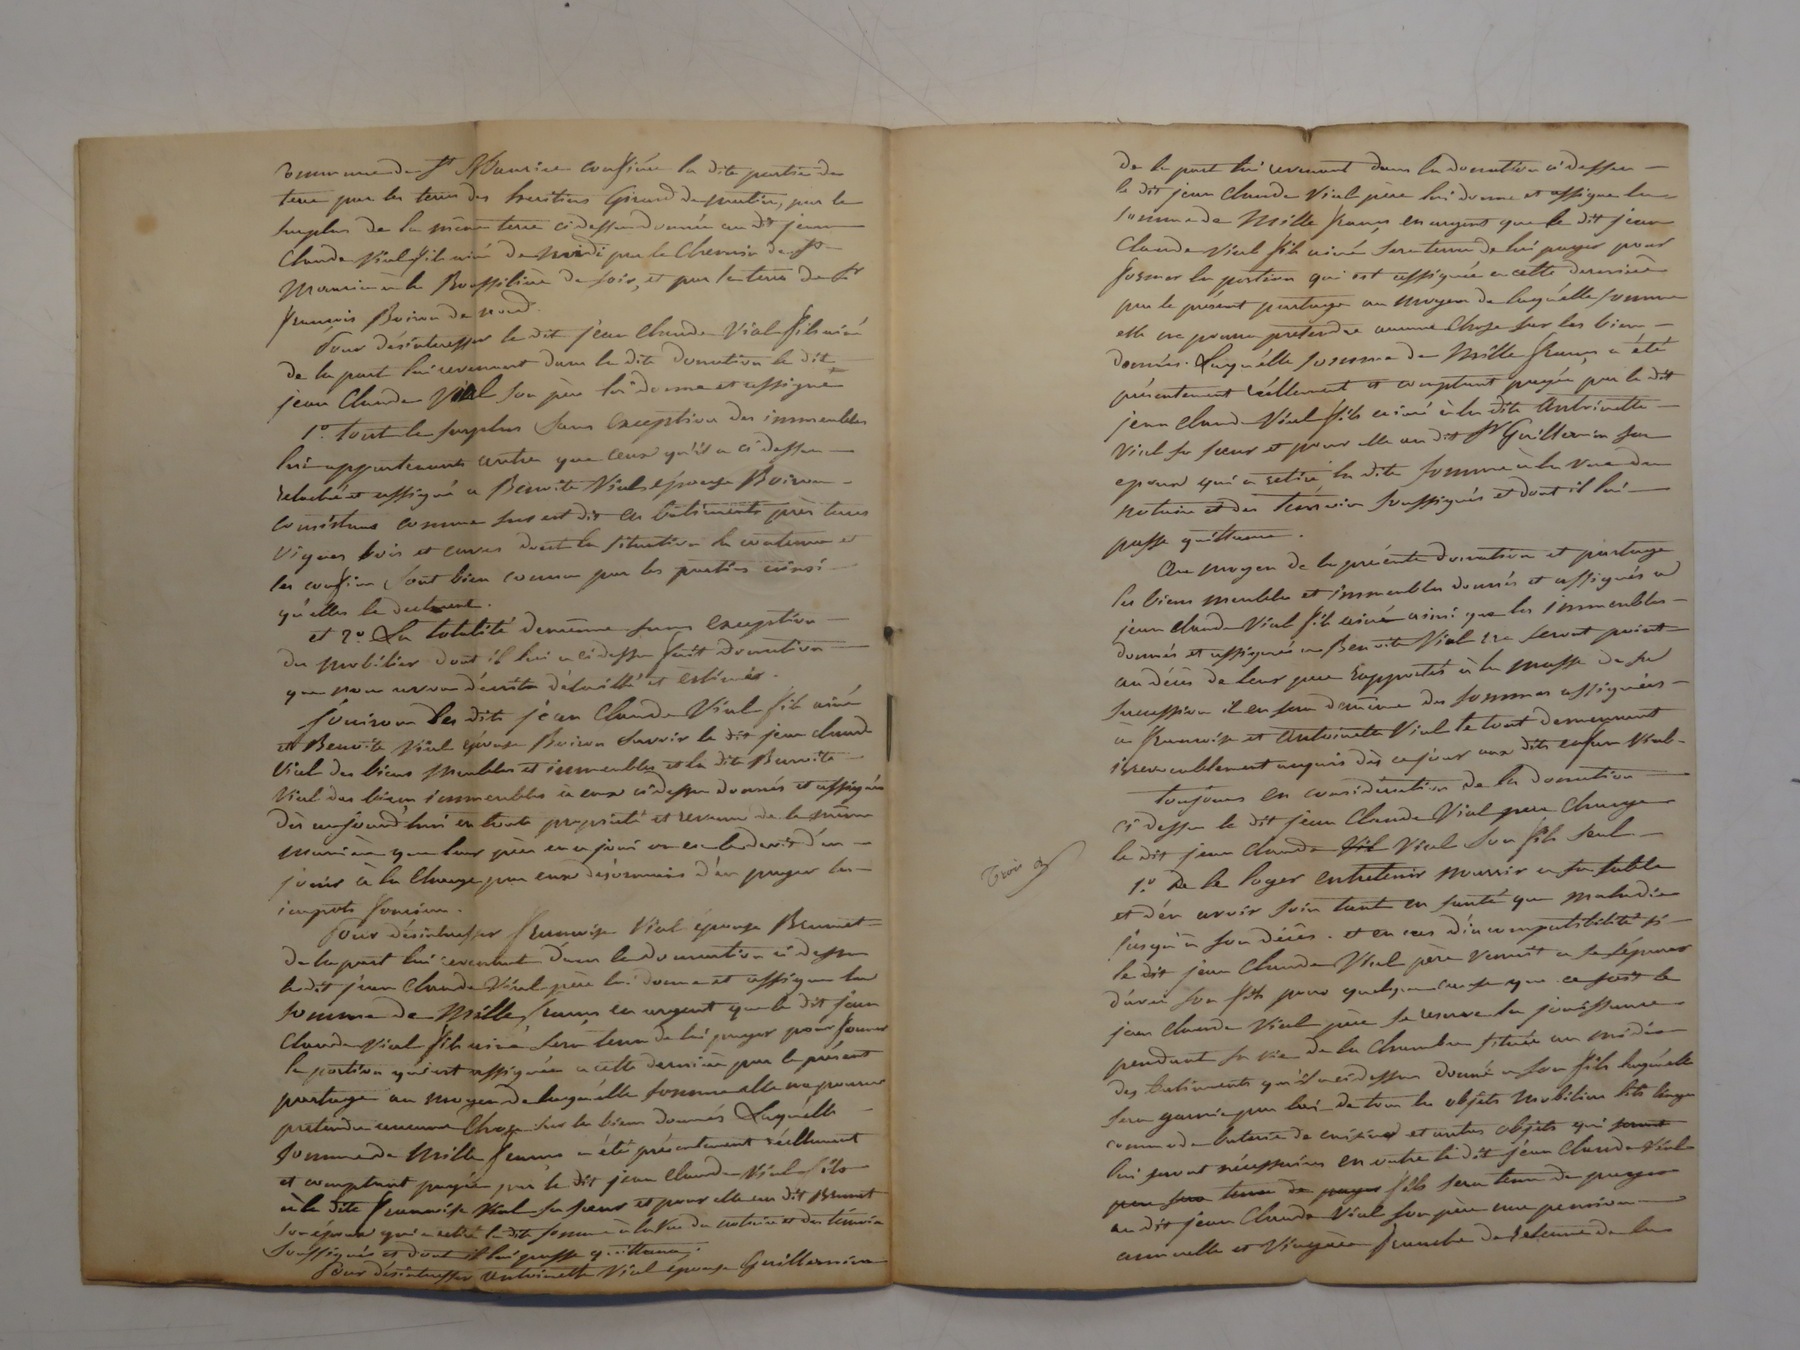 commune de St Maurice confinée la dite partie de
terre par les terres des heritiers Girard de matin, par le
surplus de la même terre ci dessus donnée au dit jean
Claude Vial fils ainé de midi par le Chemin de St
Maurice à la de soir, et par la terre de Sr
françois Boiron de nord.
Pour désintéresser le dit jean Claude Vial fils ainé
de la part lui revenant dans la dite donation le dit
jean Claude Vial son père lui donne et assigne
1.° tout le surplus sans exception des immeubles
lui appartenants autre que ceux qu'il a ci dessus
relaché et assigné a Benoite Vial épouse Boiron
consistans comme sus est dit en batiments près terres
vignes bois et dont la situation la contenue et
les confins sont bien connus par les parties ainsi
qu'elles le declarent.
et 2.° La totalité de même sans exception
du mobilier dont il lui a ci dessus fait donation
que nous avons décrits détaillé et estimés.
Jouiront les dits jean Claude Vial fils ainé
et Benoite Vial épouse Boiron savoir le dit jean claude
Vial des biens meubles et immeubles et la dite Benoite
Vial des biens immeubles à eux ci dessus donnés et assignés
dès aujourd'hui en toute propriété et revenu de la même
manière que leur père en a joui ou eu le droit d'en
jouir à la charge par eux désormais d'en payer les
impots fonciers.
Pour désintéresser françoise Vial épouse Brunet
de la part lui revenant dans la donation ci dessus
le dit jean Claude Vial père lui donne et assigne la
somme de Mille francs en argent que le dit jean
Claude Vial fils ainé sera tenu de lui payer pour former
la portion qui est assignée a cette dernière par le présent
partage au moyen de laquelle somme elle ne pourra
pretendre aucune chose sur les biens donnés Laquelle
somme de Mille francs a été présentement réellement
et comptant payée par le dit jean Claude Vial fils
à la dite françoise Vial sa soeur et pour elle au dit Brunet
son époux qui a retiré la dite somme à la vue du notaire et des témoins
soussignés et dont il lui passe quittance.
Pour désintéresser antoinette Vial épouse Guillermin
de la part lui revenant dans la donation ci dessus
le dit jean Claude Vial père lui donne et assigne la
somme de Mille francs en argent que le dit jean
Claude Vial fils ainé sera tenu de lui payer pour
former la portion qui est assignée a cette dernière
par le présent partage au moyen de laquelle somme
elle ne pourra pretendre aucune chose sur les biens
donnés. Laquelle somme de Mille francs a été
présentement réellement et comptant payée par le dit
jean Claude Vial fils ainé à la dite Antoinette
Vial sa soeur et pour elle au dit Sr Guillermin son
epoux qui a retiré la dite somme à la vue du
notaire et des témoins soussignés et dont il lui
passe quittance.
Au moyen de la présente donation et partage
les biens meubles et immeubles donnés et assignés a
jean Claude Vial fils ainé ainsi que les immeubles
donnés et assignés a Benoite Vial ne seront point
au décès de leur père rapportés à la masse de sa
succession il en sera de même des sommes assignées
a françoise et Antoinette Vial le tout demeurant
irrevocablement acquis dès ce jour aux dits enfans Vial.
Toujours en considération de la donation
ci dessus le dit jean Claude Vial père charge
le dit jean Claude fils Vial son fils seul
Trois
1.° De le loger entretenir nourrir a sa table
et d'en avoir soin tant en santé que maladie
jusqu'à son décès. et en cas d'incompatibilité si
le dit jean Claude Vial père venait a se séparer
d'avec son fils pour quelque cause que ce soit le
jean Claude Vial père se reserve la jouissance
pendant sa vie de la chambre située au midi
des batiments qu'il a ci dessus donné a son fils laquelle
sera garnie par lui de tous les objets mobiliers lits linges
commode baterie de cuisine et autres objets qui seront
lui seront nécessaires en outre le dit jean Claude Vial
père sera tenu de payer fils sera tenu de payer
au dit jean Claude Vial son père une pension
annuelle et viagère franche de retenue de la